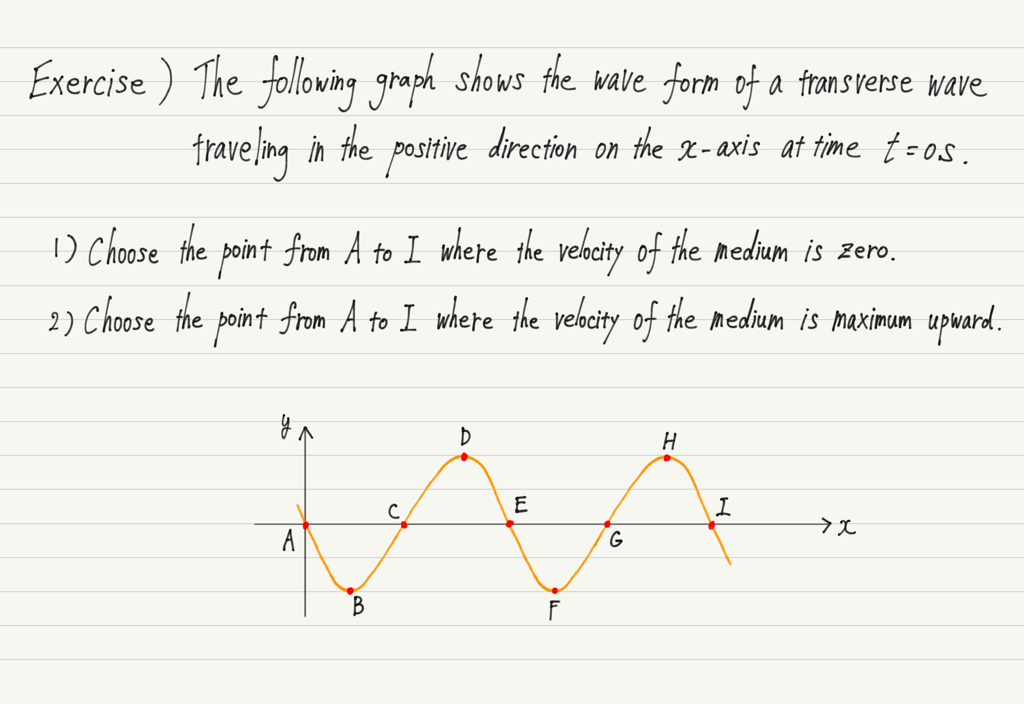 Exercise) The following graph shows the wave form of a transverse wave
traveling in the positive direction on the x-axis at time t=0s.
1) Choose the point from A to I where the velocity of the medium is zero.
2) Choose the point from A to I where the velocity of the medium is maximum upward.
y
D
H
C
E
I
x
A
G
B
F